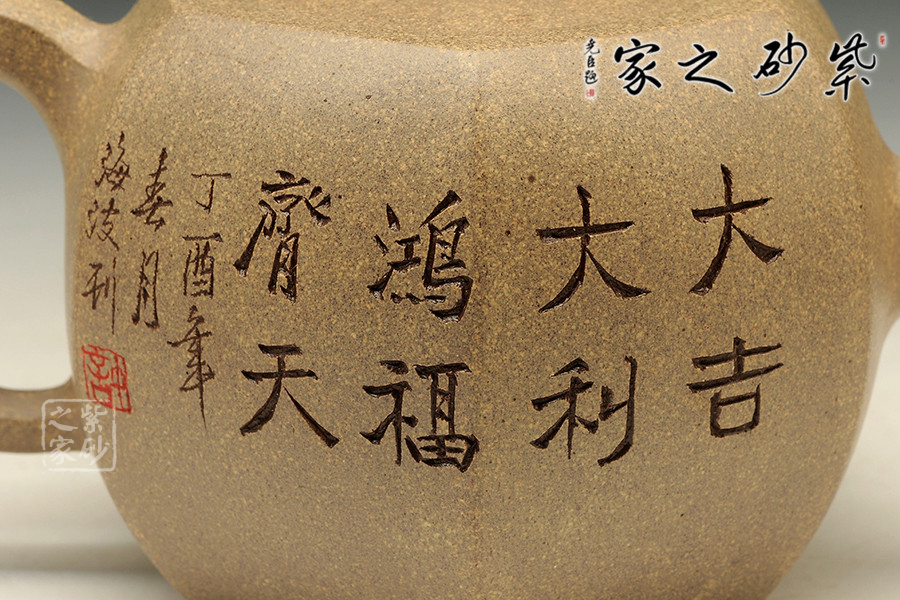 紫砂之家
大吉
大利
鴻福
齊天
丁酉年
春月
海波刊
紫砂
之家